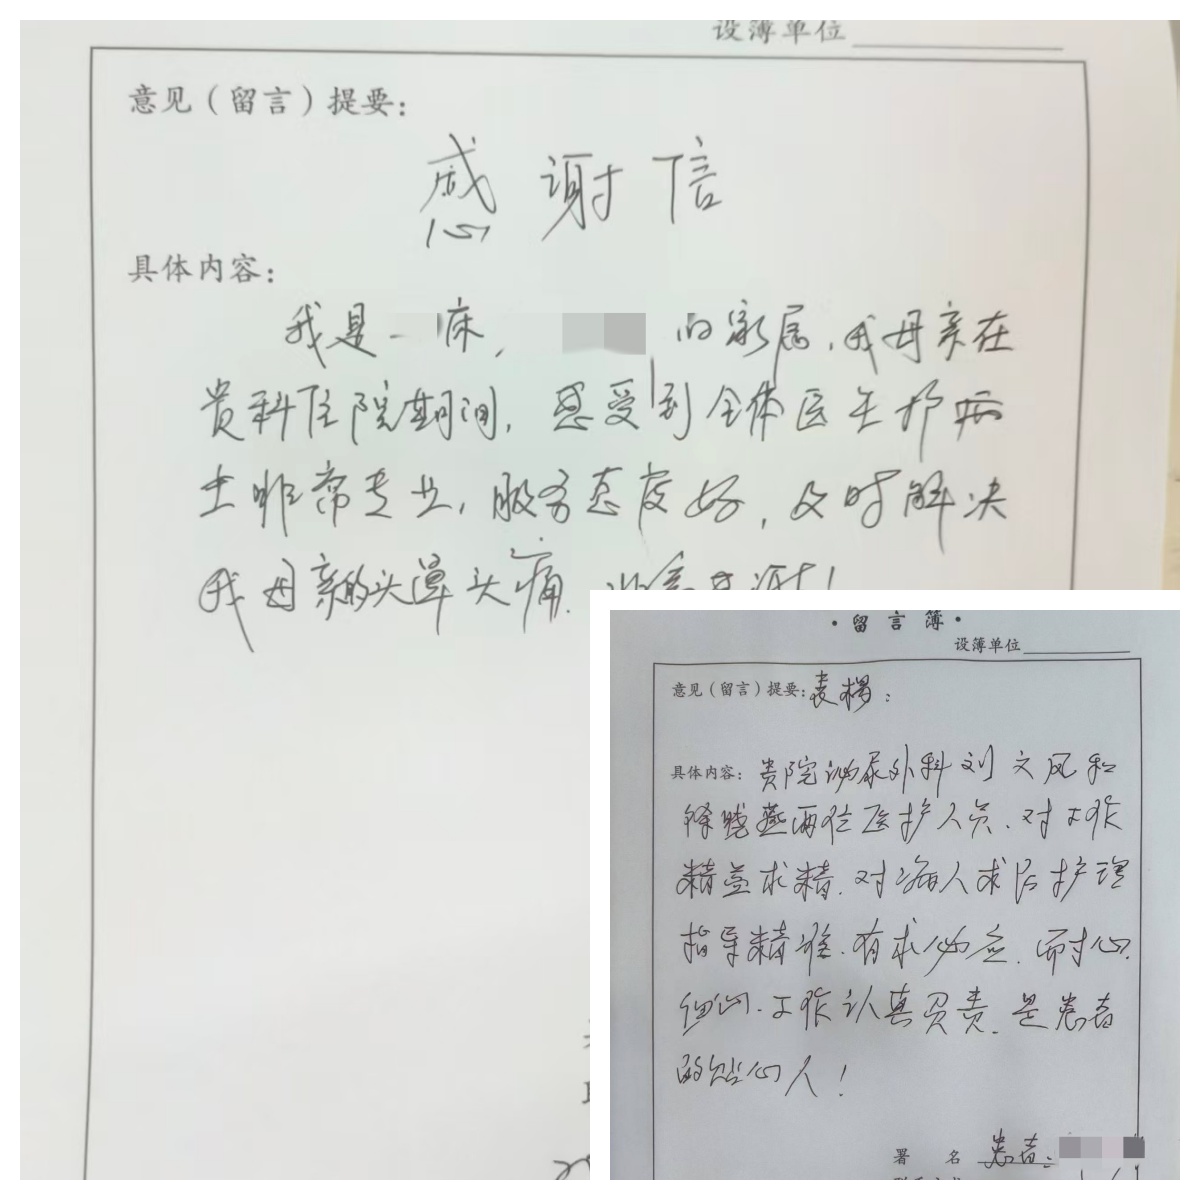 设簿单位
意见（留言）提要：
感谢信
具体内容：
我是 床， 的家属，我母亲在
贵科住院期间，感受到全体医生护
士非常专业，服务态度好，及时解决
我母亲的头晕头痛，非常感谢！
·留言簿·
设簿单位
意见（留言）提要：表扬：
具体内容：贵院泌尿外科刘文凤和
徐晓燕两位医护人员，对工作
精益求精，对病人术后护理
指导精准，有求必应，而耐心
细心，工作认真负责，是患者
的贴心人！
署 名 患者：